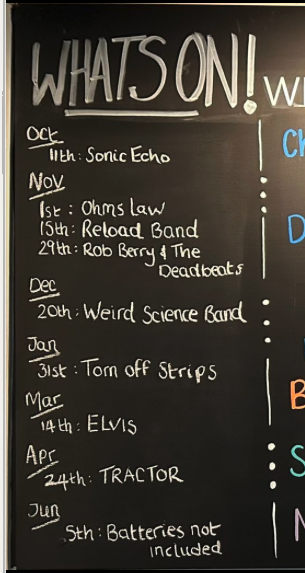 WHATS ON!
Oct
11th: Sonic Echo
Nov
1st: Ohms Law
15th: Reload Band
29th: Rob Berry & The
Deadbeats
Dec
20th: Weird Science Band
Jan
31st: Torn off Strips
Mar
14th: ELVIS
Apr
24th: TRACTOR
Jun
5th: Batteries not
included